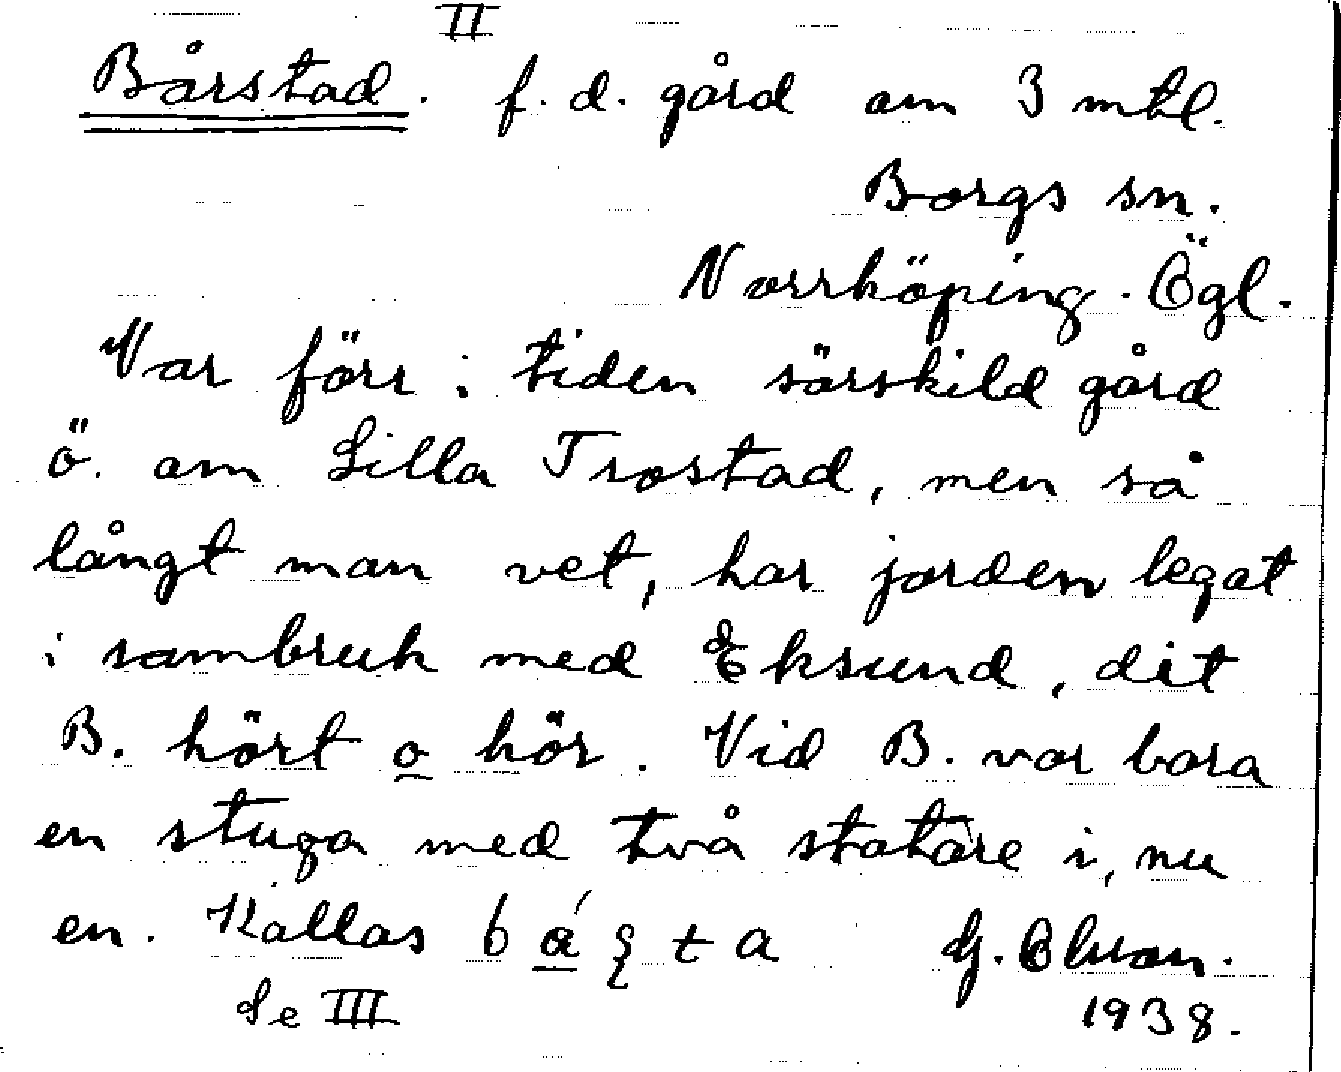 II
Bårstad. f. d. gård om 3 mtl.
Borgs sn.
Norrköping. Ögl.
Var förr i tiden särskild gård
ö. om Lilla Trostad, men så
långt man vet, har jorden legat
i sambruk med Eksund, dit
B. hört o hör. Vid B. var bara
en stuga med två statare i, nu
en. Kallas b á ʂ t a G.
Se III 1938.